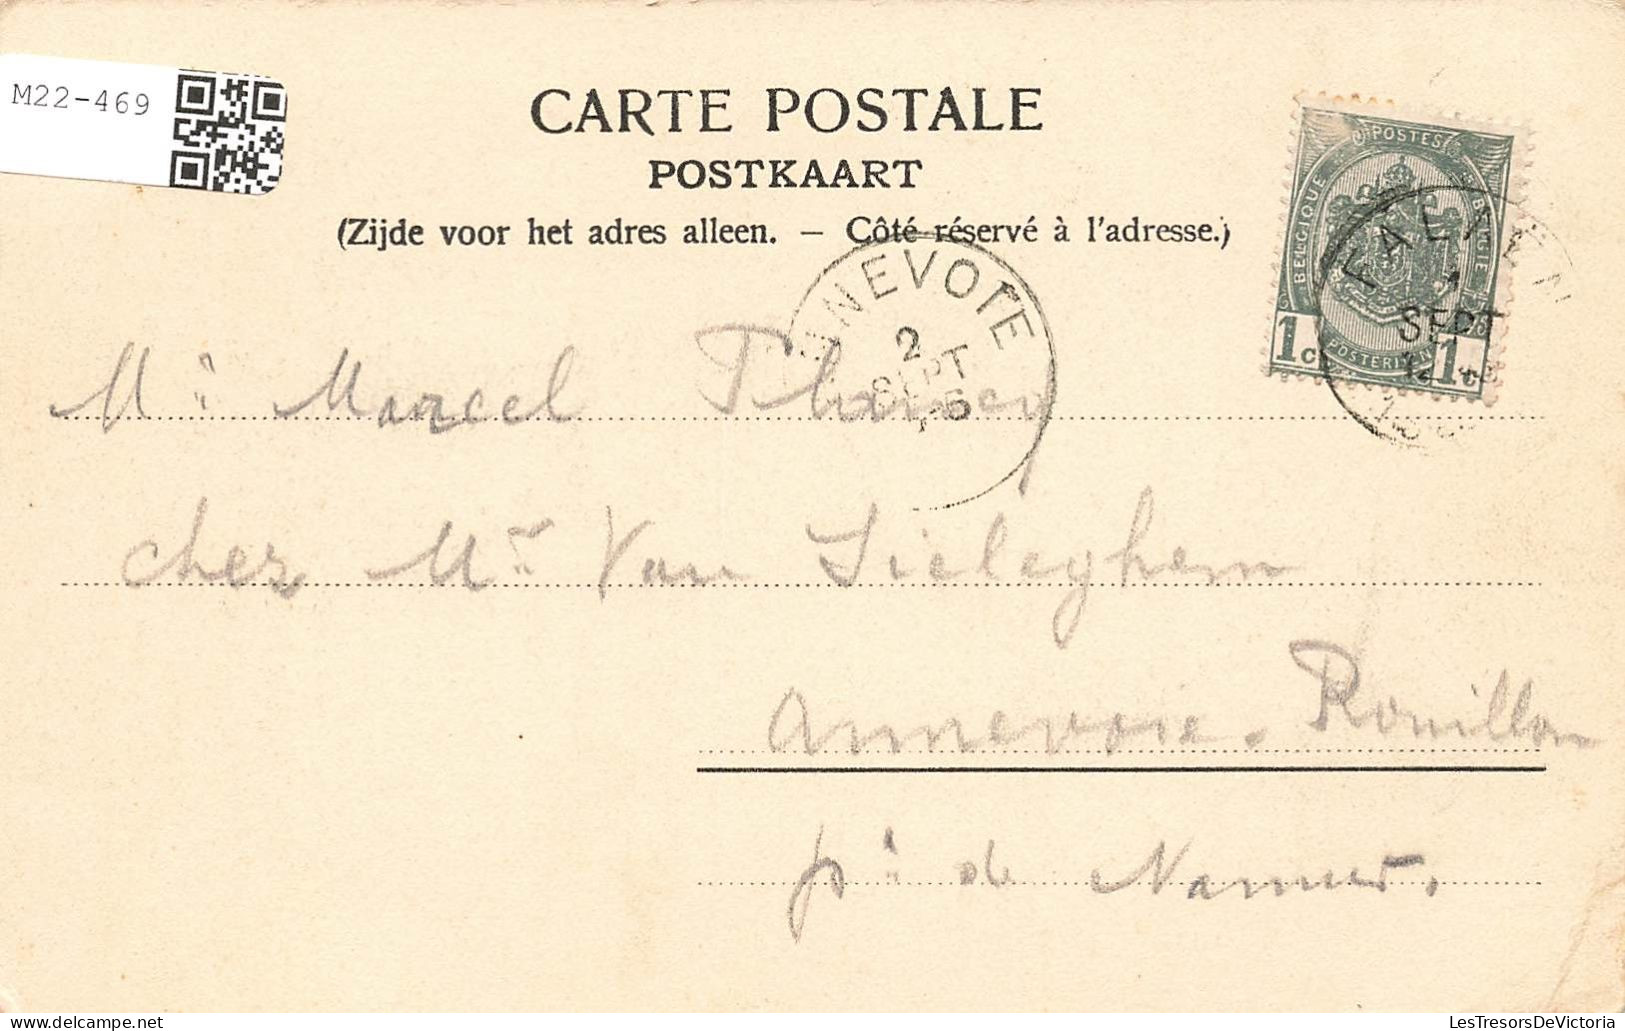 M22-469
CARTE POSTALE
POSTKAART
(Zijde voor het adres alleen. — Côté réservé à l'adresse.)
POSTES
BELGIQUE
BELGIË
POSTERIJEN
1c 1c
FALAEN
1
SEPT
NNEVOIE
2
SEPT
Mr Marcel
chez Mr Van Sieleghem
Annevoie-Rouillon
pr de Namur.
LesTresorsDeVictoria